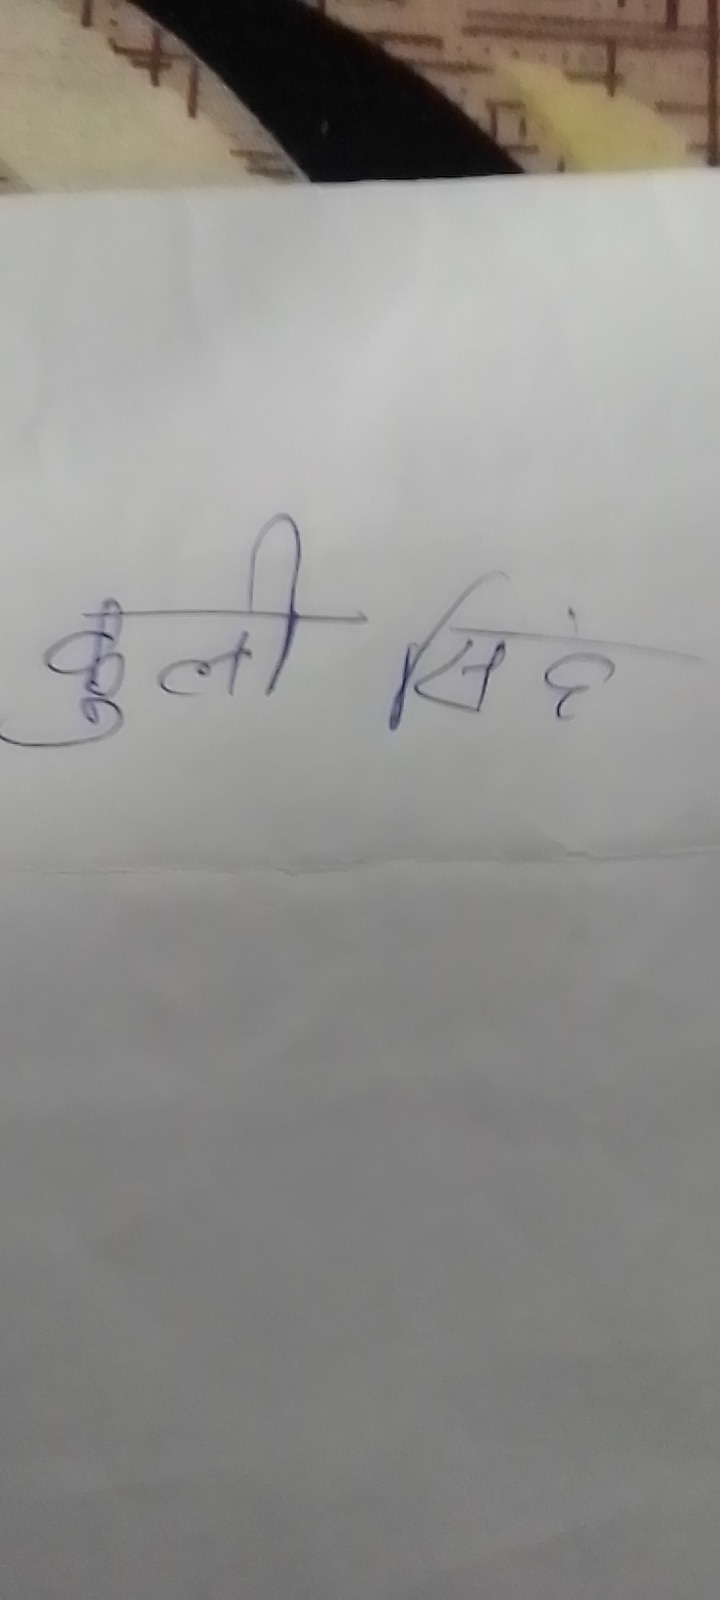 कुली सिंह